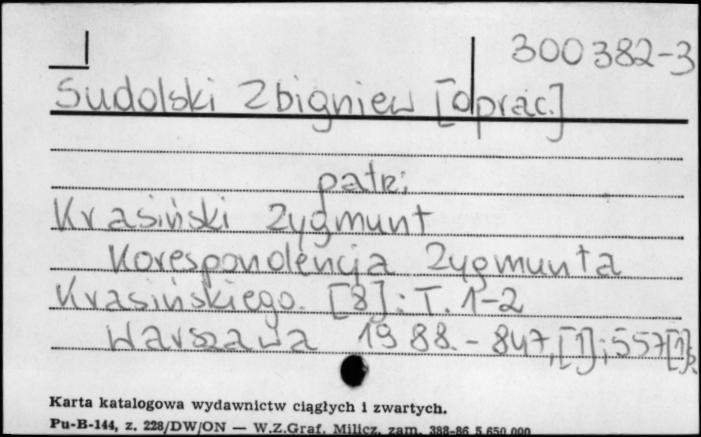 300382-3
Sudolski Zbigniew [oprac.]
patrz
Krasiński Zygmunt
Korespondencja Zygmunta
Krasińskiego. [8]: T. 1-2
Warszawa 1988. - 847,[1]; 557[1]
Karta katalogowa wydawnictw ciągłych i zwartych.
Pu-B-144, z. 228/DW/ON — W.Z.Graf. Milicz, zam. 388-86 5.650.000